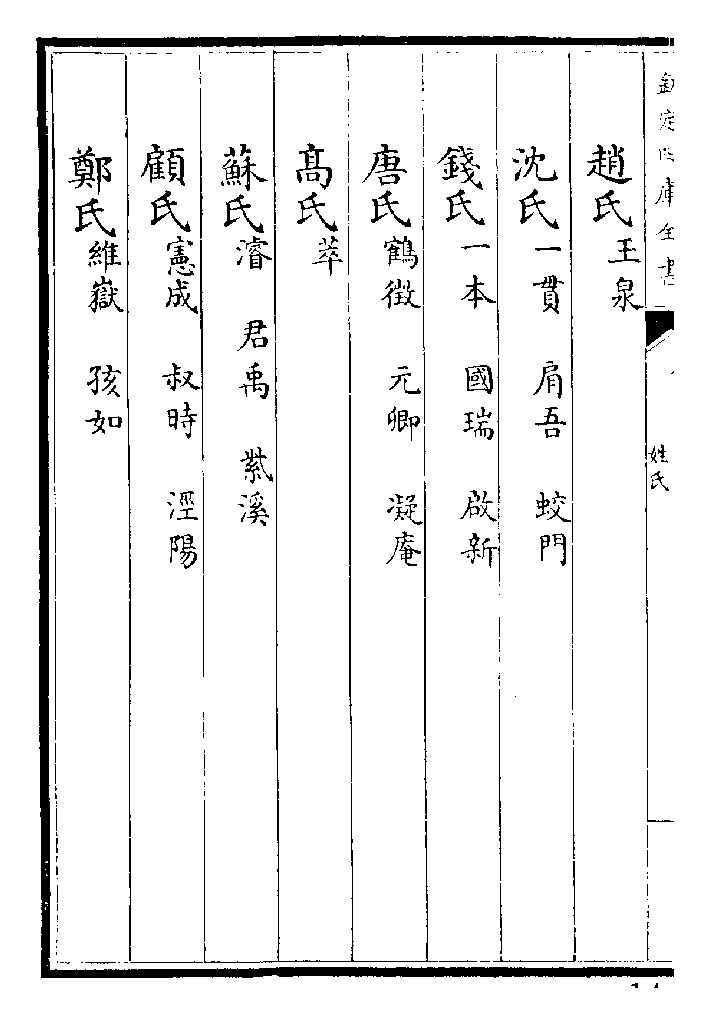 欽定四庫全書
姓氏
趙氏玉泉
沈氏一貫 肩吾 蛟門
錢氏一本 國瑞 啟新
唐氏鶴徴 元卿 凝庵
髙氏萃
蘇氏濬 君禹 紫溪
顧氏憲成 叔時 涇陽
鄭氏維嶽 孩如